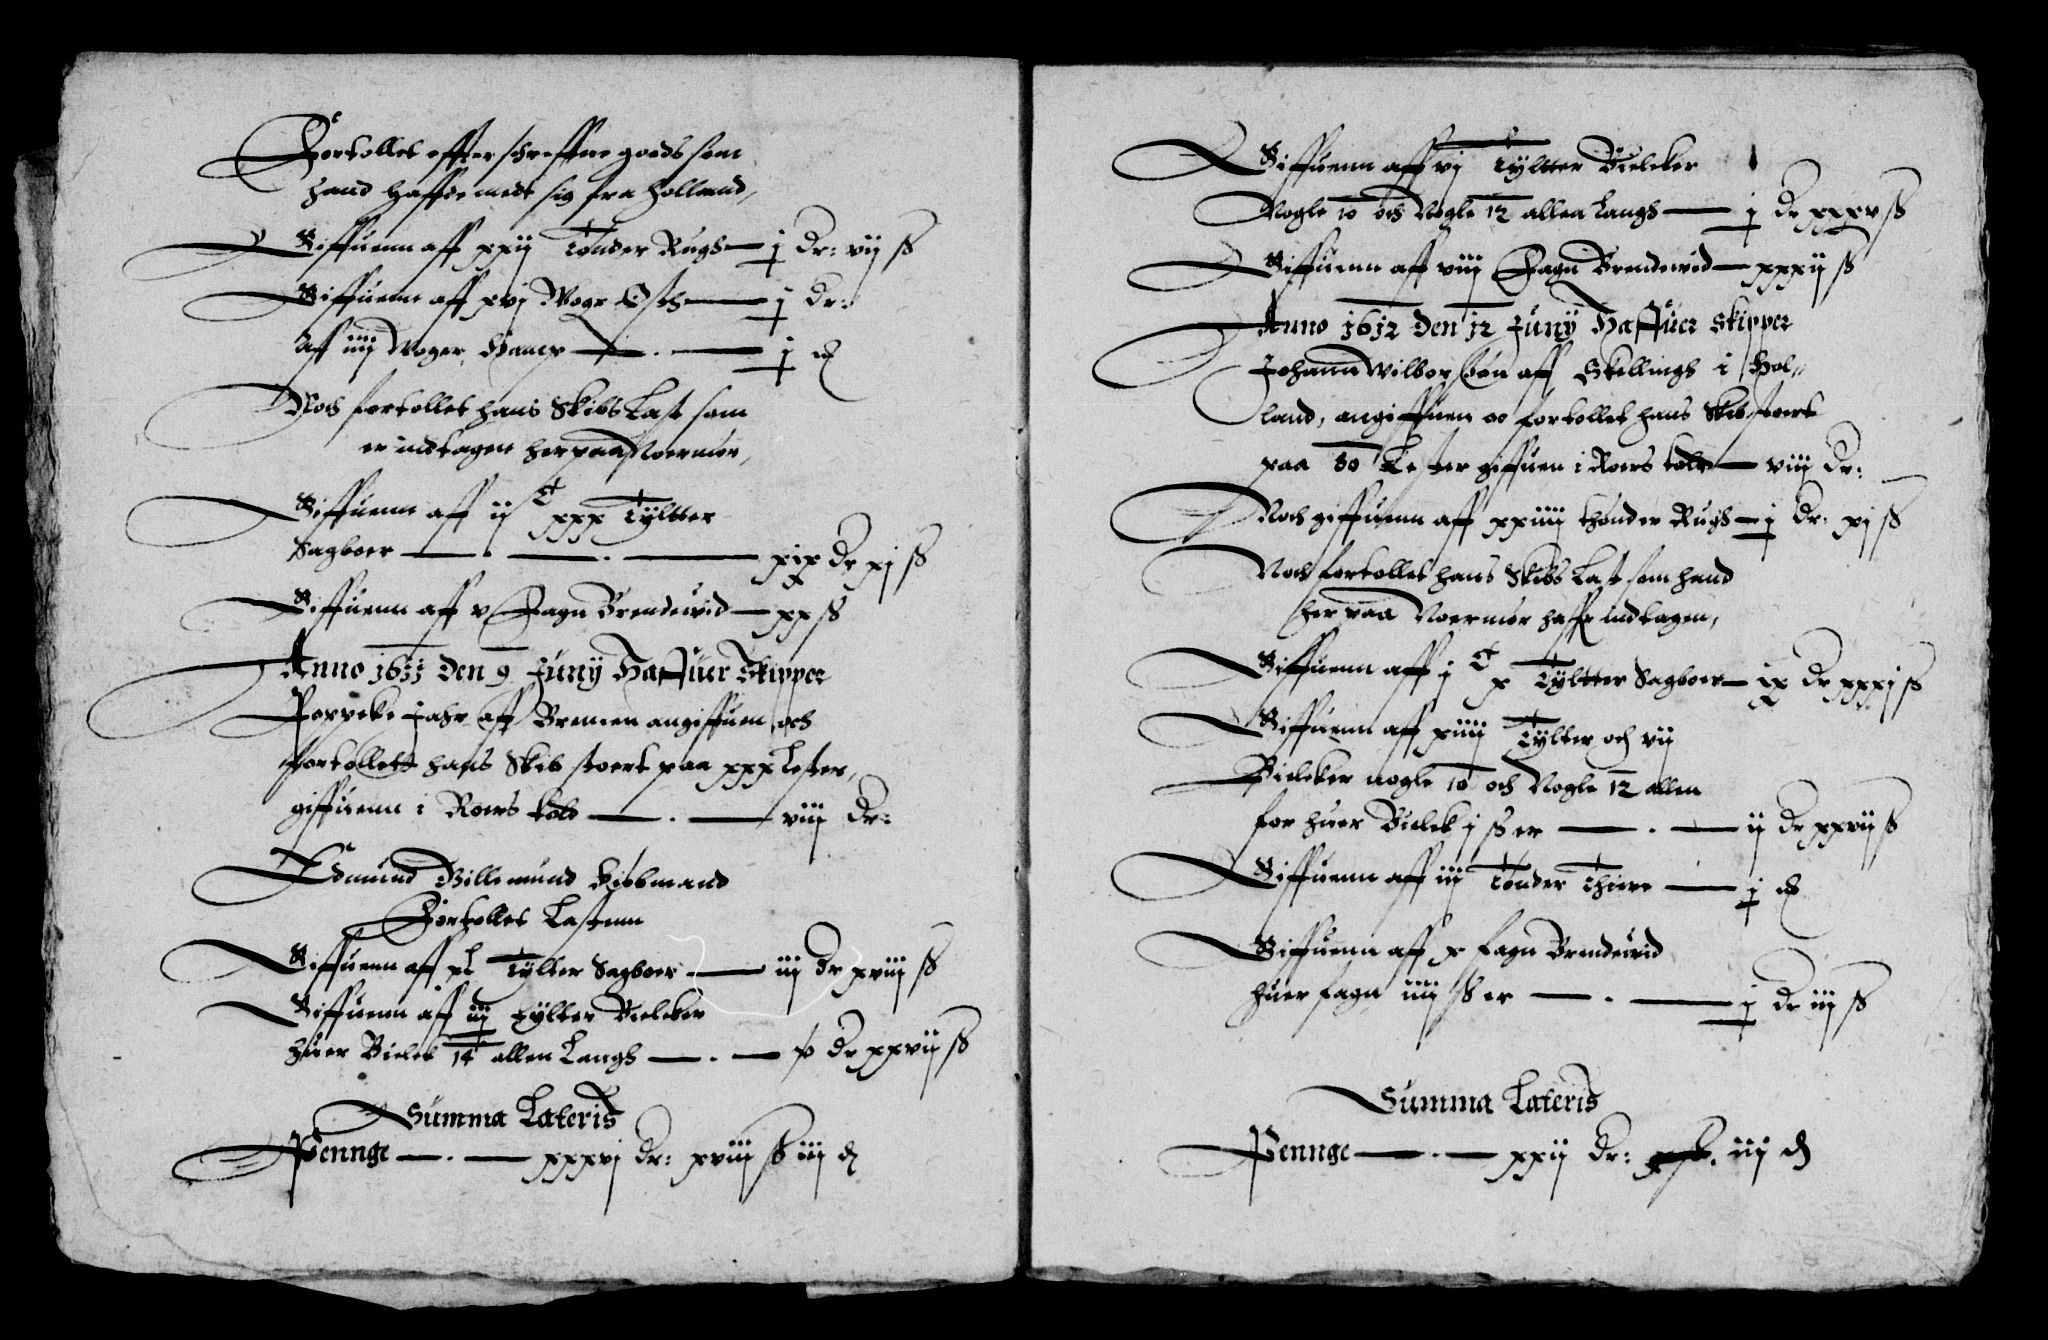 Fortollet effter schreffne goeds som
hand haffde medt sig fra Holland,
Giffuenn aff xxij Tønder Rugh — j Dr: vij ß
Giffuenn aff xvj Wogr Osth — j Dr:
Aff iiij Woger Hamp — . — j ₰
Noch fortollet hans Skibs Last som
er indtagen her paa Noermør,
Giffuenn aff ij C xxx Tÿltter
Sagboer — . — . — xix Dr xj ß
Giffuenn aff v Fagn Brendeuid — xx ß
Anno 1611 den 9 Junÿ Haffuer Skipper
Poppeke Jahr aff Bremen angiffuen och
fortollett hans Skib stoert paa xxx Lester,
giffuenn i Roers told — . — viij Dr:
Edmund Billemund Kiøbmand
Fortollet Lastenn
Giffuenn aff xl Tÿlter Sagboer — iij Dr xviij ß
Giffuenn aff iij Tÿlter Bielcker
huer Bielck 14 allen Langh — . — Dr xxvij ß
Summa Lateris
Pennge — . — xxxvj Dr: xviij ß iij ₰
Giffuenn aff vj Tÿltter Bielcker
Nogle 10 och Nogle 12 allen Langh — j Dr xxxv ß
Giffuenn aff viij Fagn Brendeuid — xxxij ß
Anno 1612 den 12 Junÿ Haffuer Skipper
Johann Wilborsøn aff Skellingh i Hol„
land, angiffuen oc fortollet hans Skib stoert
paa 30 Lester giffuen i Roers told — viij Dr:
Noch giffuenn aff xxiiij thønder Rugh — j Dr: xj ß
Noch fortollet hans Skibs Last som hand
her paa Noermør haffr indtagen,
Giffuenn aff j C x Tÿltter Sagboer — ix Dr xxxj ß
Giffuenn aff xiiij Tÿlter och vij
Bielcker nogle 10 och Nogle 12 allen
for huer Bielck j ß er — . — ij Dr xxvij ß
Giffuenn aff iij Tønder Thiere — j ₰
Giffuenn aff x fagn Brendeuid
huer fagn iiij ß er — . — j Dr iij ß
Summa Lateris
Pennge — . — xxij Dr: iij ₰